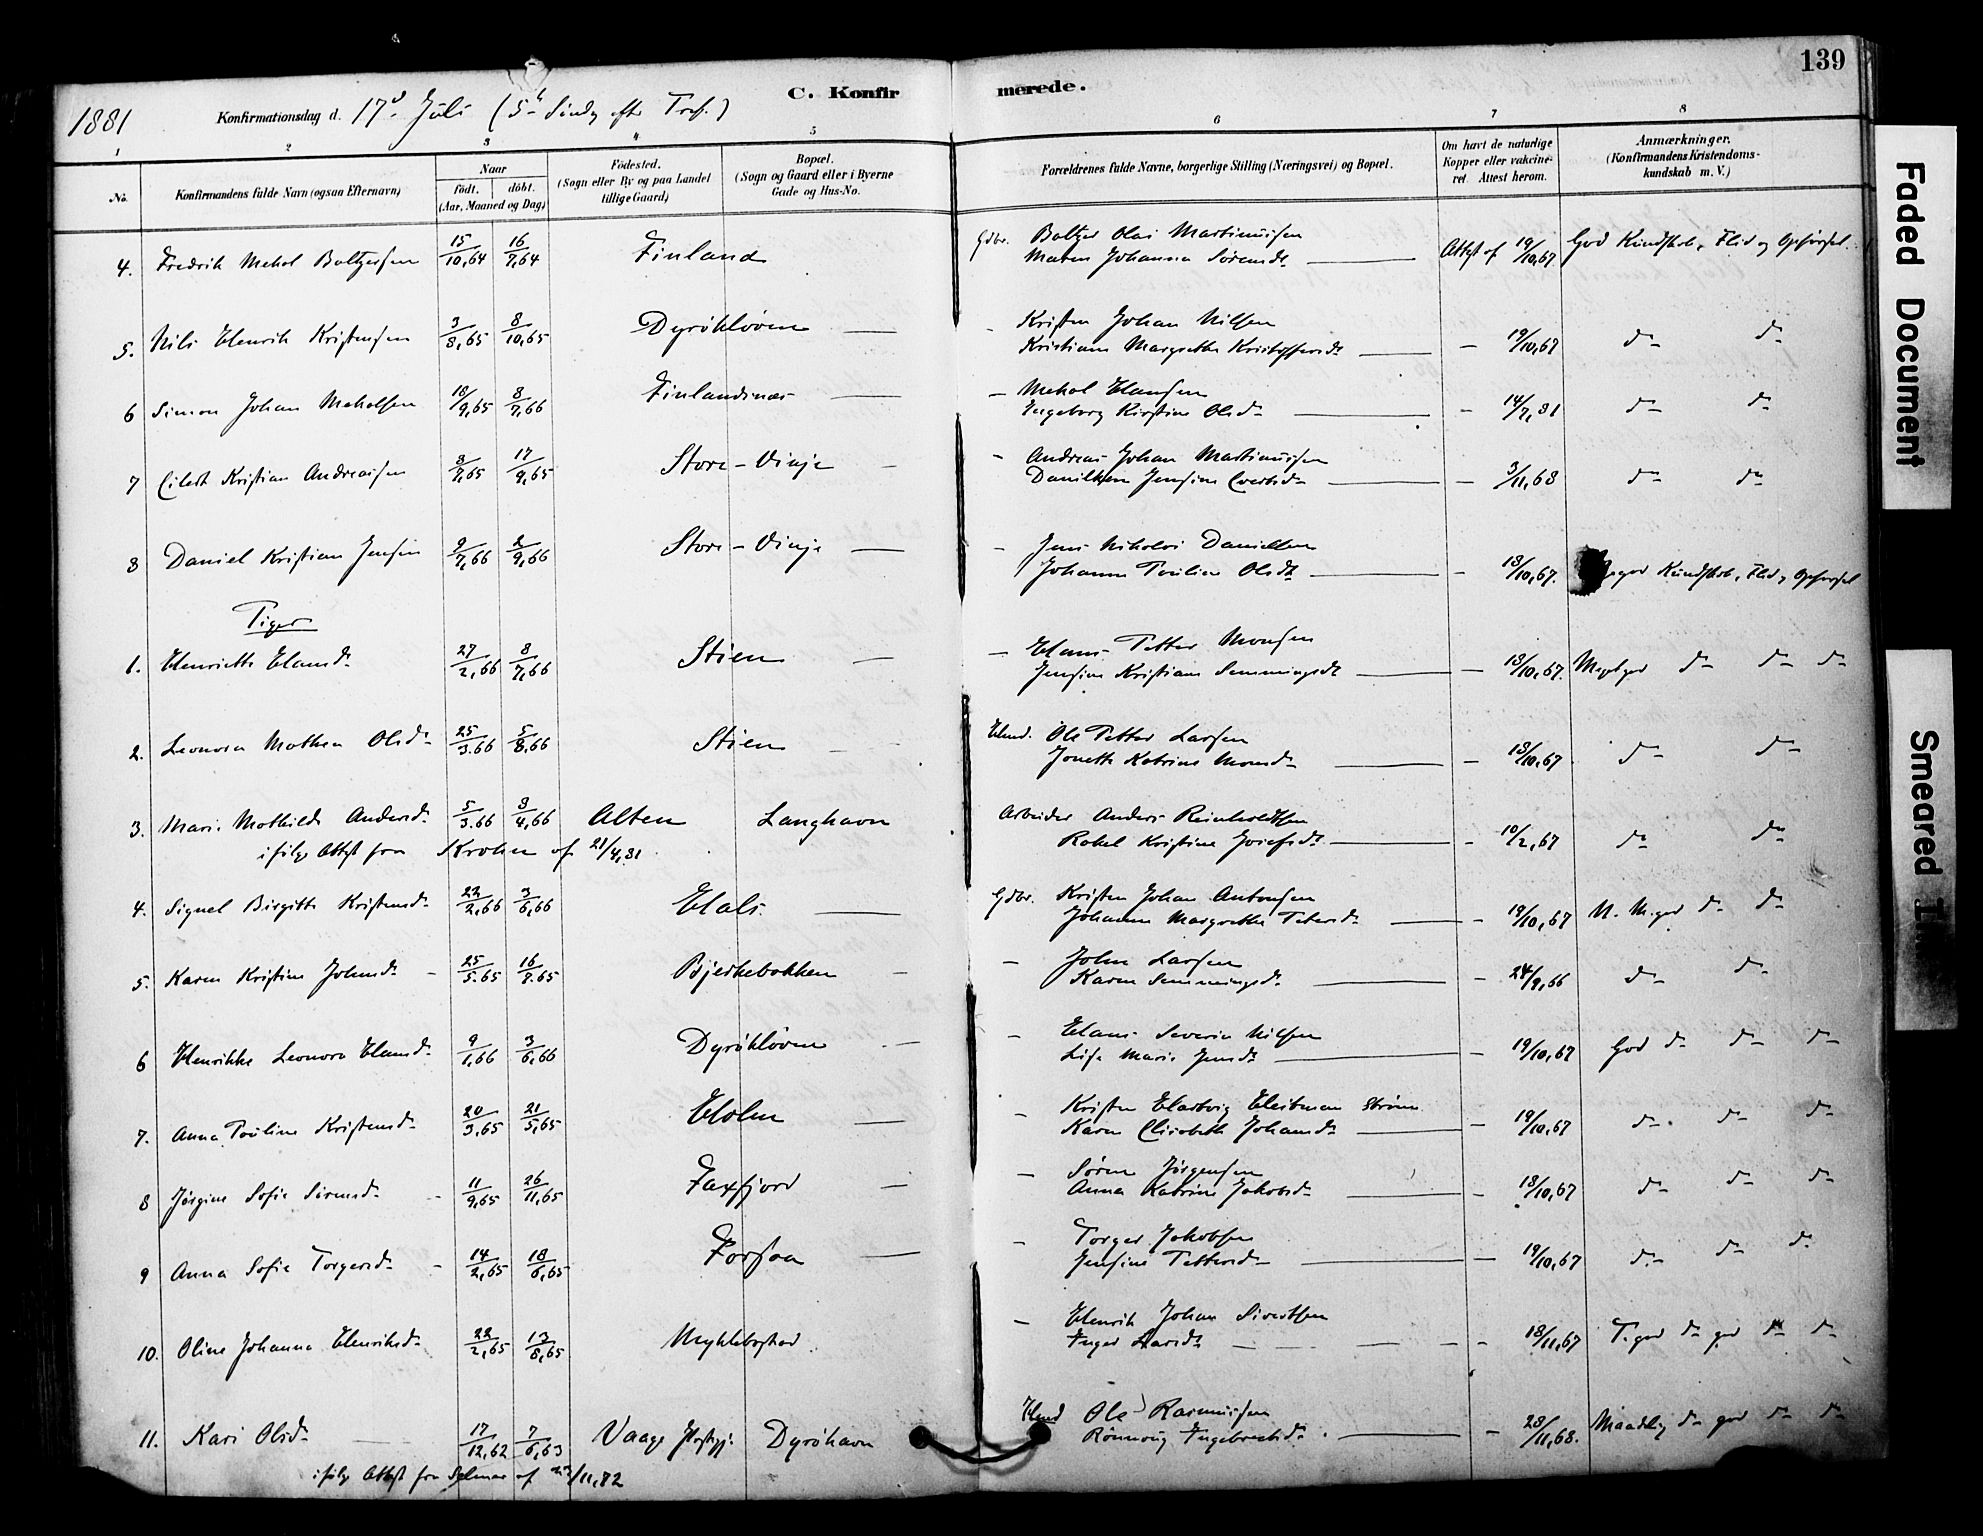 139
C. Konfirmerede.
1881 Konfirmationsdag d. 17d Juli (5te Sønd. efter Tref.)
1 2 3 4 5 6 7 8
No. Konfirmandens fulde Navn (ogsaa Efternavn) Naar født. døbt. (Aar, Maaned og Dag) Fødested. (Sogn eller By og paa Landet tillige Gaard) Bopæl. (Sogn og Gaard eller i Byerne Gade og Hus-No. Forældrenes fulde Navne, borgerlige Stilling (Næringsvei) og Bopæl. Om havt de naturlige Kopper eller vaccineret. Attest herom. Anmærkninger. (Konfirmandens Kristendomskundskab m. V.)
4. Fredrik Mekal Baltzersen 15/10,64 16/7,64 Finland Gdbr. Baltzer Olai Martinussen
Maren Johanna Sørensdr Attest af 19/10,67 God Kundskab, Flid og Opførsel
5. Nils Henrik Kristensen 3/8,65 8/10,65 Dyrøkløven — - Kristen Johan Nilsen
Kristiane Margrethe Kristoffersdr — 19/10,67 do do
6 Simon Johan Mekalsen 18/9,65 8/7,66 Finlandsnæs — - Mekal Hansen
Ingeborg Kirstine Olsdr — 14/7,81 do do
7 Edvart Kristian Andreassen 8/7,65 17/9,65 Store-Vinje — - Andreas Johan Martinussen
Danilken Jensine Evertsdr — 3/11,68 do do
8 Daniel Kristian Jensen 9/7,66 2/9,66 Store-Vinje — - Jens Nikolai Danielsen
Johanna Pauline Olsdr — 18/10,67. Kundskab, Flid, Opførsel
Piger
1. Henriette Hansdr 27/2,66 8/7,66 Stien — - Hans Petter Monsen
Jensine Kristiane Semmingsdr — 18/10,67. Megetgod do do do
2. Leonora Mathea Olsdr 25/3.66 5/8,66 Stien — Husmd. Ole Petter Larsen
Jonette Katrine Monsdr — 18/10,67 do do
3. Marie Mathilde Andersdr 5/3.66 8/4,66 Alten Langhavn Arbeider Anders Reinholdtsen
ifølge Attest fra Krohn af 21/4,81. Rakel Kristine Josefsdr — 10/2,67 do do
4. Signel Birgitte Kristensdr 22/2,66 3/6,66 Hals. — Gdbr. Kristen Johan Antonsen
Johanna Margrethe Petersdr — 19/10,67 N. M.god do do
5. Karen Kristine Johnsdr 25/5.65 16/7.65 Bjerkebakken — - John Larsen
Karen Semmingsdr — 24/9,66 do do
6 Henrikke Leonora Hansdr 9/1,66 3/6,66 Dyrøkløven — - Hans Severin Nilsen
Lise Marie Jensdr — 19/10,67 God do do do
7. Anna Pauline Kristensdr 20/3,65 21/5,65 Holm — - Kristen Hartvig Heitman Strøm
Karen Elisabeth Johansdr — 19/10,67 do do do
8 Jørgine Sofie Sørensdr 11/9,65 26/11,65 Faxfjord — - Søren Jørgensen
Anna Katrine Jakobsdr — 18/10,67 do do do
9 Anna Sofie Torgersdr 14/2,65 18/6,65 Forsaa — - Torger Jakobsen
Jensine Pettersdr — 19/10,67 do do do
10. Oline Johanna Henriksdr 22/2,65 13/8,65 Myklebostad - Henrik Johan Sivertsen
Inger Larsdr — 18/11,67 T. god do god do do
11. Kari Olsdr 17/12,62 7/6,63 Vaage Dyrøhavn Husmd Ole Rasmussen
Rønnoug Ingebretsdr — 28/11,68. Maadelig do god do do
ifølge Attest fra af /11,82
Faded Document
Smeared